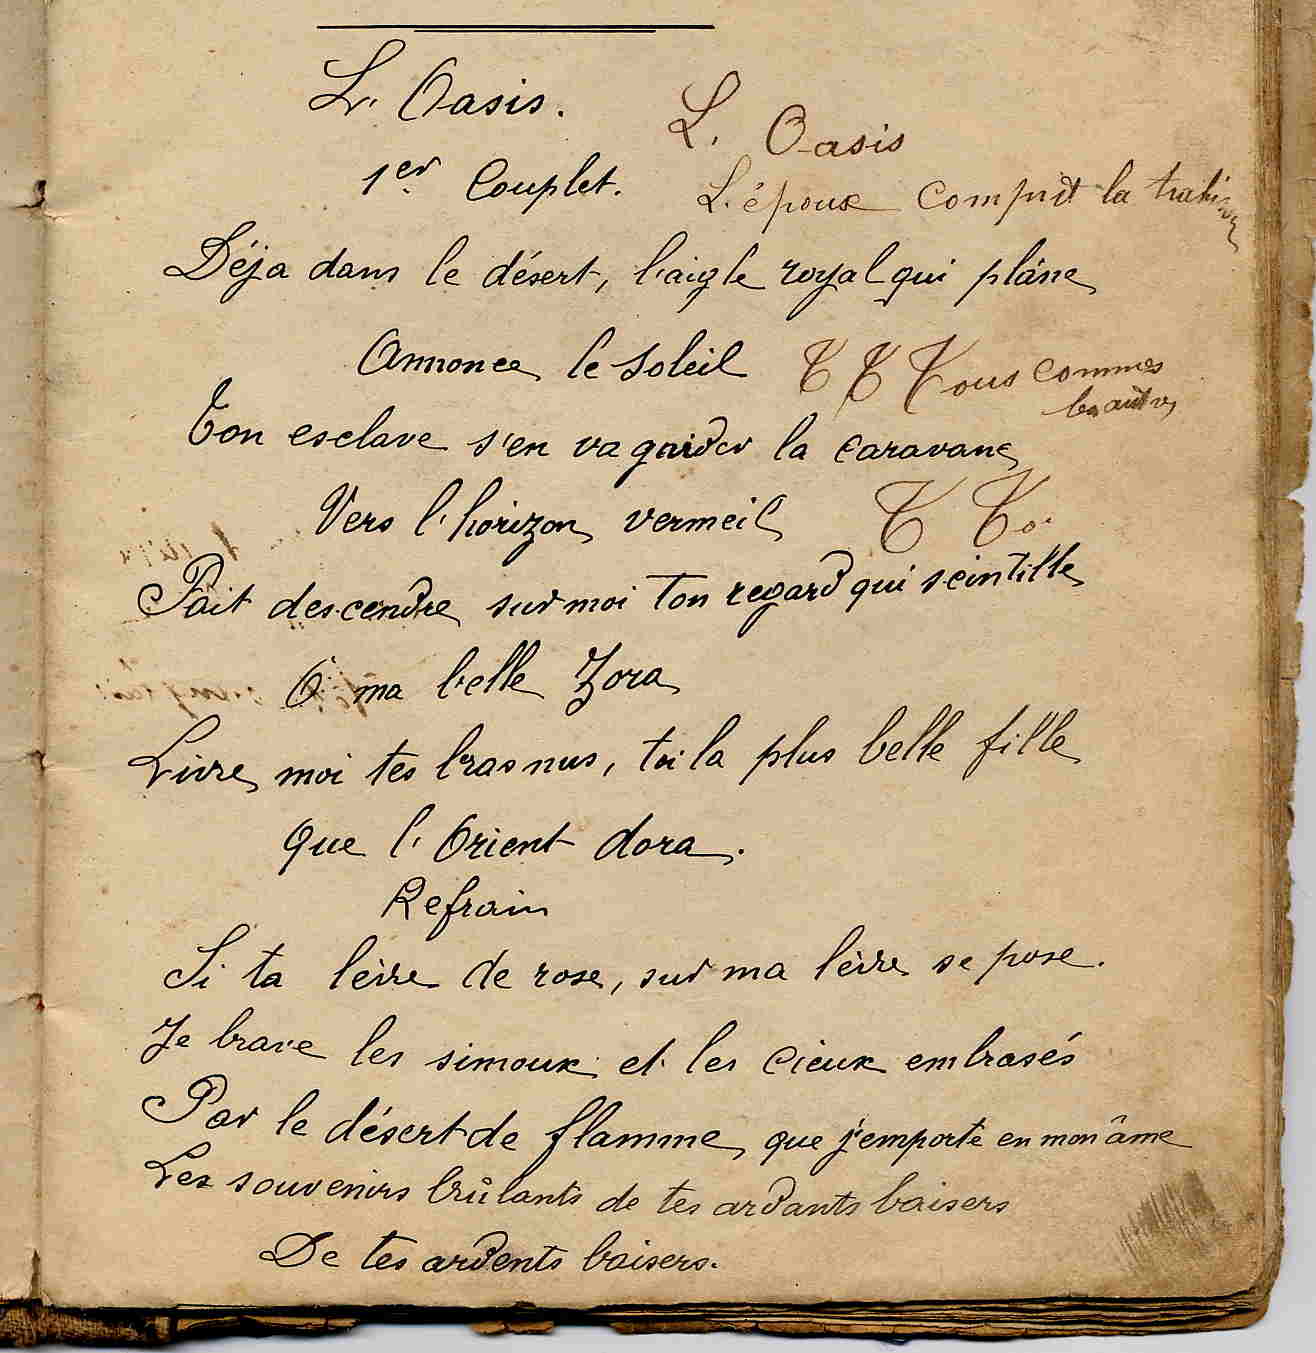 L'Oasis.
L'Oasis
1er Couplet.
L'époux comprit la trahison
Déja dans le désert, l'aigle royal qui plâne
Annonce le soleil
T T Tous commes
Ton esclave s'en va guider la caravane
Vers l'horizon vermeil
T To
Fait descendre sur moi ton regard qui scintille
O ma belle Zora
Livre moi tes bras nus, toi la plus belle fille
Que l'Orient dora.
Refrain
Si ta lèvre de rose, sur ma lèvre se pose.
Je brave les simoux et les cieux embrasés
Par le désert de flamme, que j'emporte en mon âme
Les souvenirs brûlants de tes ardants baisers
De tes ardents baisers.